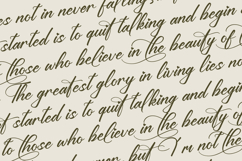 es not in never falling
started is to quit talking and begin
those who believe in the beauty of
The greatest glory in living lies no
f started is to quit talking and begin
to those who believe in the beauty of
but I'm not the